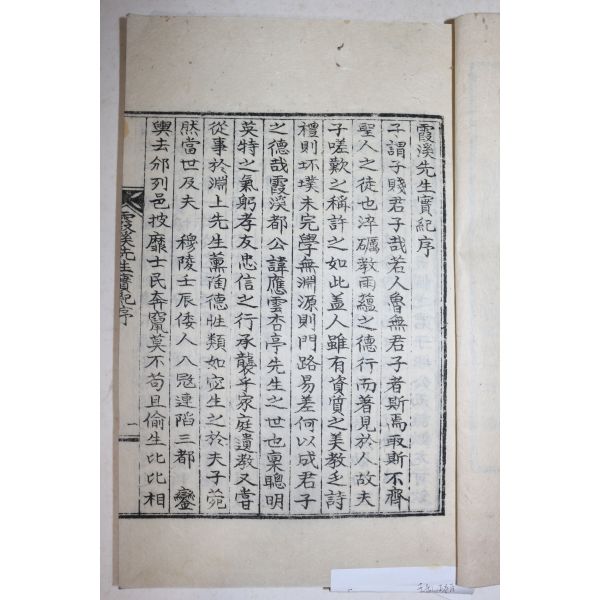 霞溪先生實紀序
子謂子賤君子哉若人魯無君子者斯焉取斯不齊
聖人之徒也淬礪教雨蘊之德行而著見於人故夫
子嗟歎之稱許之如此盖人雖有資質之美教乏詩
禮則坏墣未完學無淵源則門路易差何以成君子
之德哉霞溪都公諱應雲杏亭先生之世也稟聰明
英特之氣躬孝友忠信之行承襲乎家庭遺教又嘗
從事於淵上先生薰陶德性類如宓生之於夫子菀
然當世及夫 穆陵壬辰倭人入冦連陷三都 鑾
輿去邠列邑披靡士民奔竄莫不苟且偷生比比相
霞溪先生實紀序 一